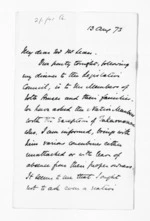 13 Aug 73
My dear Mr McLean.
Our party tonight, following
my dinner to the Legislative
Council, is to the Members of
both Houses and their families.
We have asked the Native Members
with the exception of
also. I am informed, brings with
him various members either
unattached or with leave of
absence from their proper owners.
It seems to me that I ought
not to ask even a Native